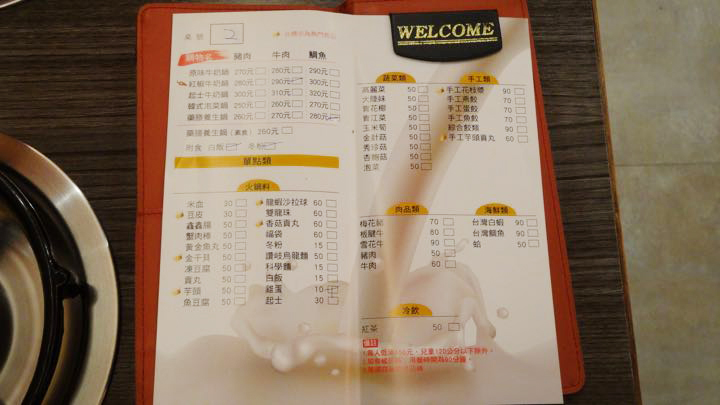 WELCOME
桌號 2
鍋物名 豬肉 牛肉 鯛魚
原味牛奶鍋 270元 280元 290元
紅椒牛奶鍋 280元 290元 300元
起士牛奶鍋 300元 310元 320元
韓式泡菜鍋 250元 260元 270元
藥膳養生鍋 260元 270元 280元
藥膳養生鍋(素食) 260元
附食 白飯 冬粉
單點類
火鍋料
米血 30
豆皮 30
鑫鑫腸 50
蟹肉棒 50
黃金魚丸 50
金干貝 50
凍豆腐 50
貢丸 50
芋頭 50
魚豆腐 50
龍蝦沙拉球 60
雙龍珠 60
香菇貢丸 60
福袋 60
冬粉 15
讚岐烏龍麵 50
科學麵 15
白飯 15
雞蛋 10
起士 30
蔬菜類
高麗菜 50
大陸妹 50
青花椰 50
青江菜 50
玉米筍 50
金針菇 50
秀珍菇 50
杏鮑菇 50
泡菜 50
手工類
手工花枝漿 90
手工燕餃 90
手工蛋餃 90
手工魚餃 90
綜合餃類 90
手工芋頭貢丸 60
肉品類
梅花豬 70
板腱牛 80
雪花牛 90
豬肉 50
牛肉 60
海鮮類
台灣白蝦 90
台灣鯛魚 90
蛤 50
冷飲
紅茶 50